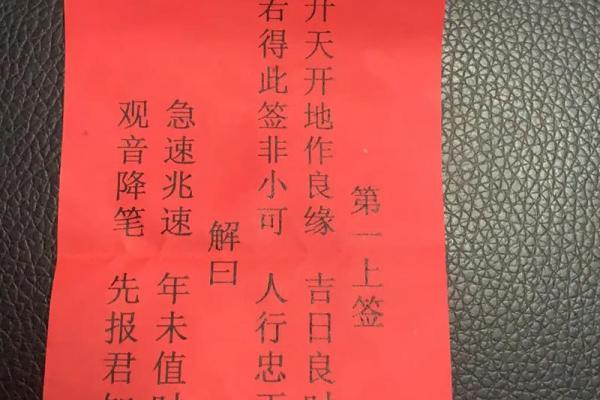 第一上签
开天开地作良缘 吉日良时
若得此签非小可 人行忠
解曰
急速兆速 年未值
观音降笔 先报君